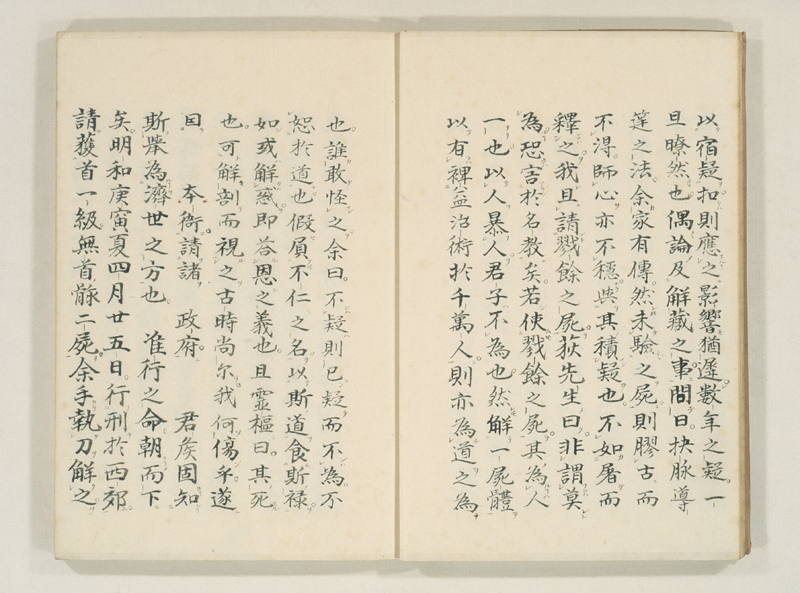 以宿疑扣則應之影響猶遅數年之疑一
旦暸然也偶論及解藏之事問曰抉脉導
筳之法余家有傳然未驗之屍則膠古而
不淂師心亦不穏與其積疑也不如屠而
釋之我且請戮餘之屍荻先生曰非謂莫
為恐害於名教矣若使戮餘之屍其為人
一也以人暴人君子不為也然解一屍體
以有裨益治術於千萬人則亦為道之為
也誰敢怪之余曰不疑則已疑而不為不
恕於道也假屓不仁之名以斯道食斯祿
如或解惑即荅恩之義也且霊樞曰其死
也可解剖而視之古時尚尓我何傷乎遂
因　本衙請諸　政府　君矦固知
斯舉為濟世之方也　准行之命朝而下
矣明和庚寅夏四月廿五日行刑於西郊
請獲首一級無首骵二屍余手執刀解之